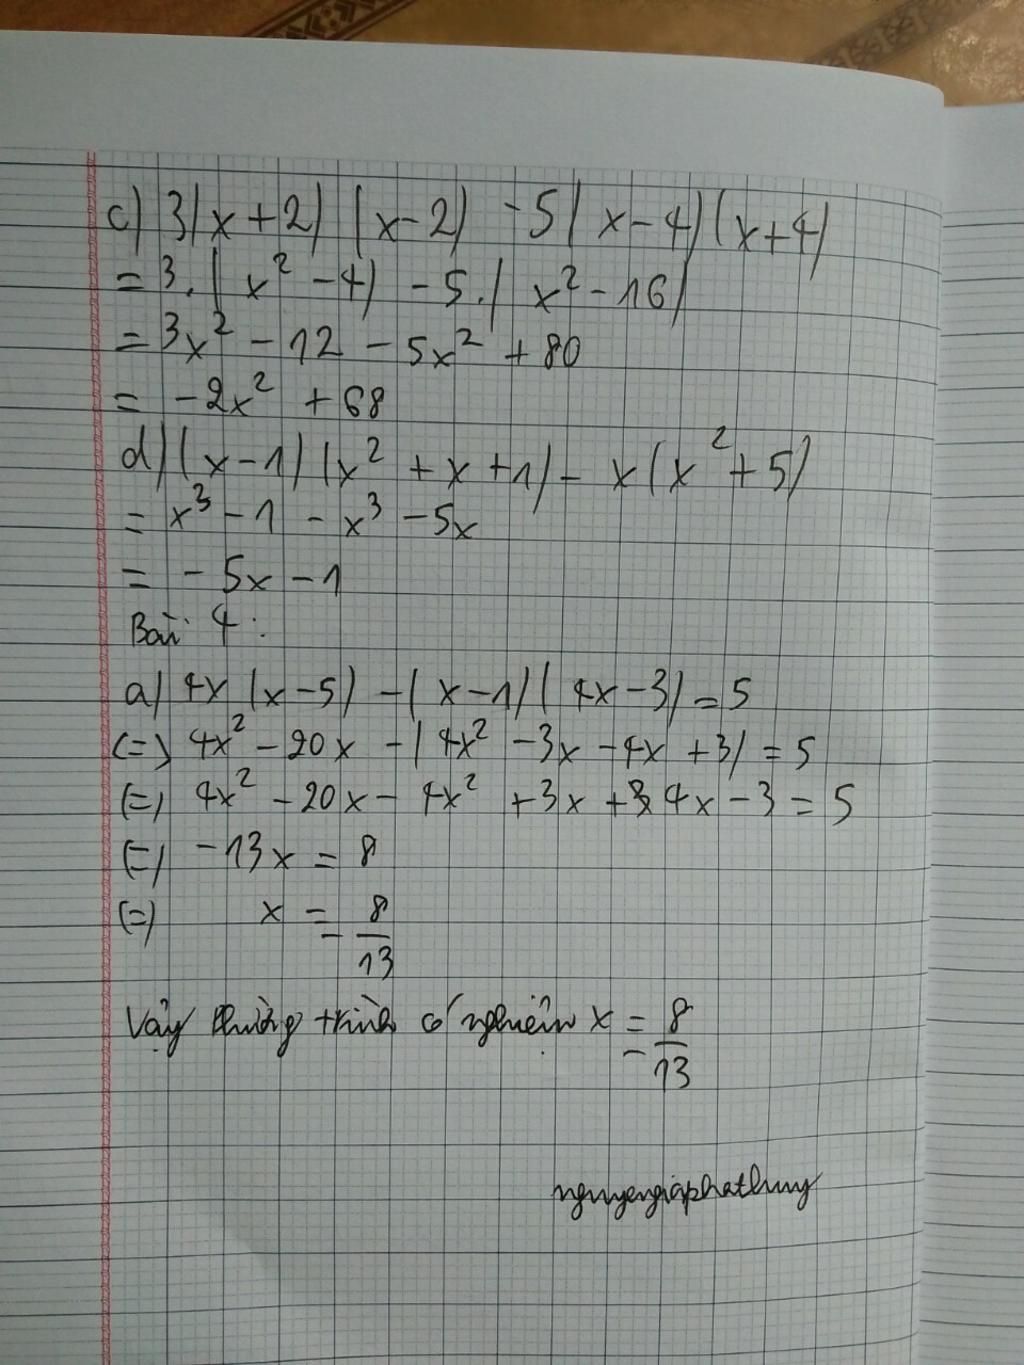 c) 3(x+2) (x-2) - 5(x-4)(x+4)
= 3.(x² - 4) - 5.(x² - 16)
= 3x² - 12 - 5x² + 80
= -2x² + 68
d) (x-1) (x² + x + 1) - x(x² + 5)
= x³ - 1 - x³ - 5x
= - 5x - 1
Bài 4:
a) 4x(x-5) - (x-1)(4x-3) = 5
(=) 4x² - 20x - (4x² - 3x - 4x + 3) = 5
(=) 4x² - 20x - 4x² + 3x + 4x - 3 = 5
(=) -13x = 8
(=) x = - 8/13
Vậy phương trình có nghiệm x = - 8/13
nguyengiaphathuy